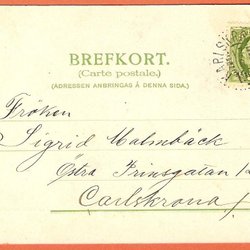 BREFKORT.
(Carte postale.)
(ADRESSEN ANBRINGAS Å DENNA SIDA.)
Fröken
Sigrid Malmbäck
Östra Prinsgatan 12
Carlskrona